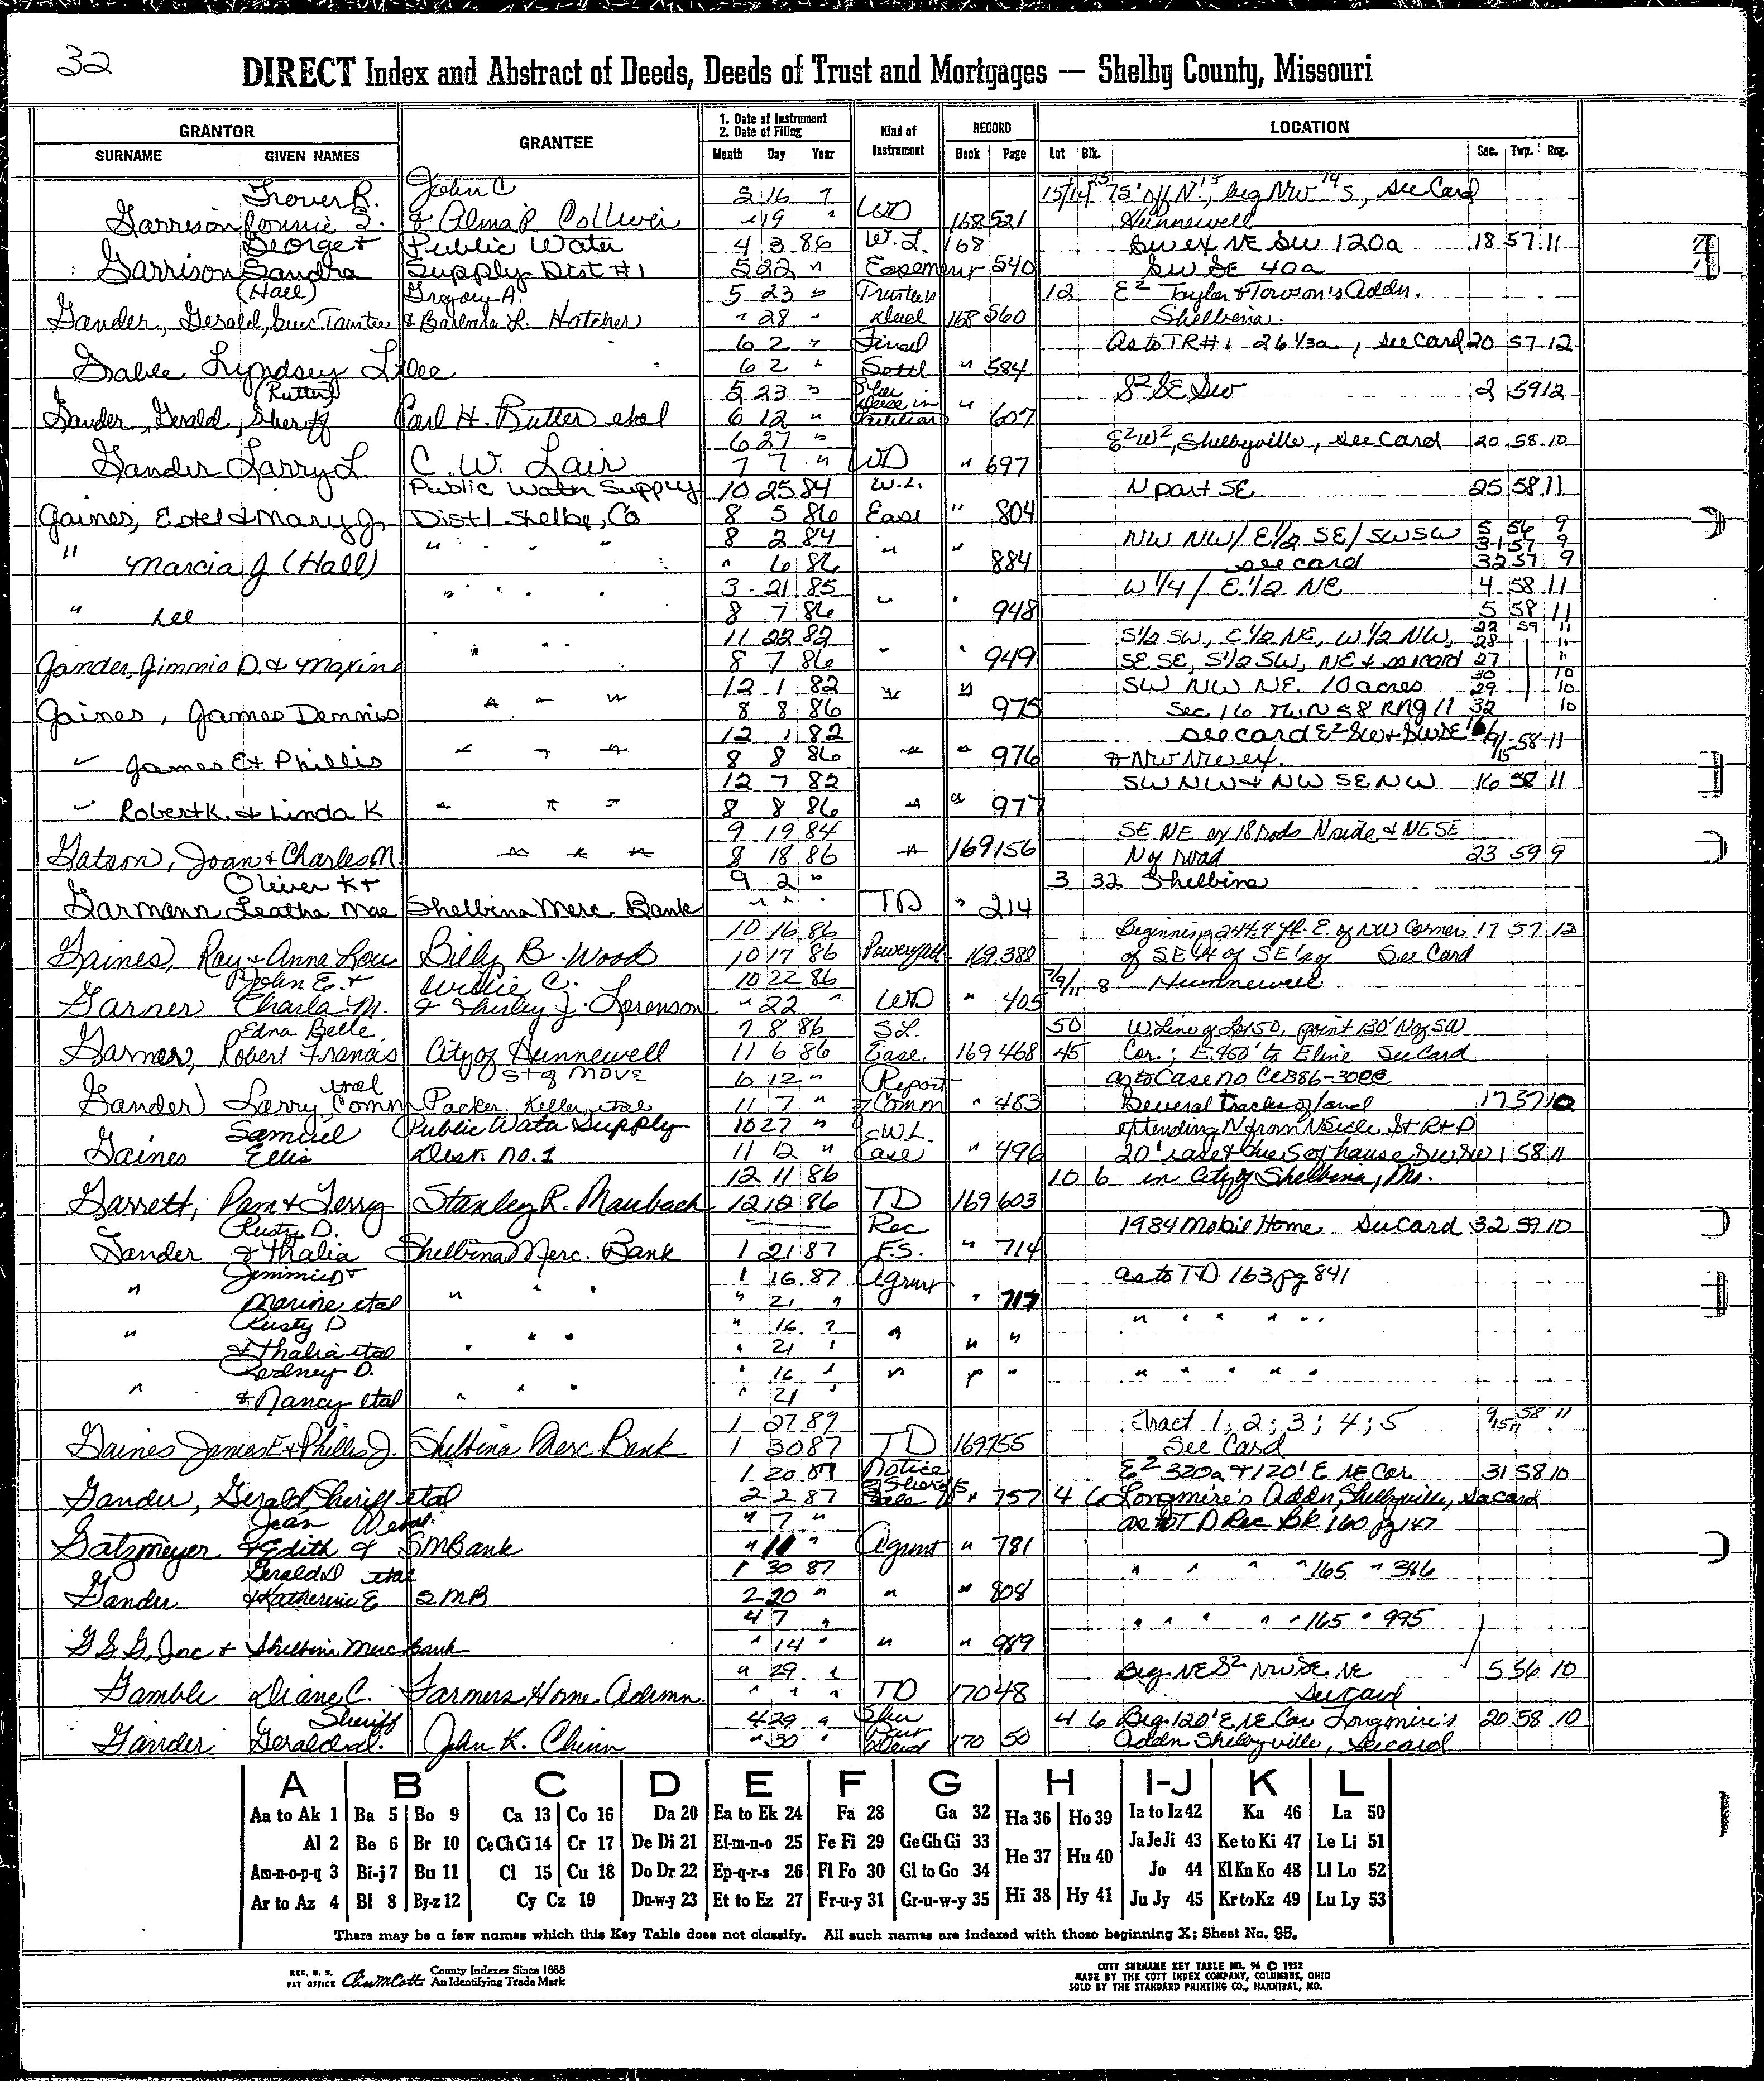 32
DIRECT Index and Abstract of Deeds, Deeds of Trust and Mortgages — Shelby County, Missouri
GRANTOR GRANTEE 1. Date of Instrument Kind of RECORD LOCATION
2. Date of Filing Instrument
SURNAME GIVEN NAMES Month Day Year Book Page Lot Blk. Sec. Twp. Rng.
Trover R. John C 5 16 75' off N. beg NW S, See Card
Garrison & Alma P. " 19 " WD 168 521 Hunnewell
George & Public Water 4 3 86 W.L. 168 SW ex NE SW 120a 18 57 11
Garrison Sandra Supply Dist #1 5 22 " Easement 540 SW SE 40a
(Hall) Gregory A. 5 23 " Trustees 12 E2 Taylor & Towson's Addn.
Gander, Gerald, Succ Trustee & Barbara L. Hatcher " 28 " Deed 168 560 Shelbina.
6 2 " Final As to TR #1 26 1/3a, See Card 20 57 12
Gable Lyndsey 6 2 " Settl " 584
(Rutter) 5 23 " S2 SE SW 2 59 12
Gander, Gerald, Sheriff Carl H. Rutter etal 6 12 " Deed in Partition " 607
6 27 " E2W2, Shelbyville, See Card 20 58 10
Gander Larry L C. W. Lair 7 7 " WD " 697
Public Water Supply 10 25 84 W.L. N part SE 25 58 11
Gaines, Estel & Mary J. Dist 1 Shelby, Co 8 5 86 Ease " 804
8 2 84 NW NW / E 1/2 SE / SW SW 5 56 9
31 57 9
" Marcia J (Hall) " " " " " 6 86 " " 884 see card 32 57 9
3 21 85 W 1/4 / E 1/2 NE 4 58 11
" Lee " " " " 8 7 86 " " 948 5 58 11
11 22 82 S 1/2 SW, E 1/2 NE, W 1/2 NW, 22 59 11
28 11
Gander, Jimmie D. & Maxine " " " 8 7 86 " " 949 SE SE, S 1/2 SW, NE & see card 27 11
12 1 82 SW NW NE 10 acres 30 10
29 10
Gaines, James Dennis " " " 8 8 86 " " 975 Sec. 16 TWN 58 RNG 11 32 10
12 1 82 see card E2 SW & SW SE
" James E & Phillis " " " 8 8 86 " " 976 & NW NW ex. 58 11
12 7 82 SW NW & NW SE NW 16 58 11
" Robert K. & Linda K " " " 8 8 86 " " 977
9 19 84 SE NE ex 18 Rods N side & NE SE
Gatson, Joan & Charles M. " " " 8 18 86 " 169 156 N of road 23 59 9
Oliver K & 9 2 " 3 32 Shelbina
Garmann Leatha Mae Shelbina Merc. Bank " " " TD " 214
10 16 86 Beginning 244.4 ft. E. of NW Corner 17 57 12
Gaines, Ray & Anna Lou Billy B. Wood 10 17 86 Power of Att 169 388 of SE 1/4 of SE 1/4 of See Card
John E. & Willie C. 10 22 86 8 Hunnewell
Garner Charla M. & Shirley J. Lorenson " 22 " WD " 405
Edna Belle, 7 8 86 S.L. 50 W. Line of Lot 50, point 130' N of SW
Garner, Robert Francis City of Hunnewell 11 6 86 Ease. 169 468 45 Cor.; E. 460' to E line See Card
etal St of MOVS 6 12 " Report as to Case no CV386-30CC
Gander Larry, Comm Packer, Keller, etal 11 7 " of Comm " 483 Several tracks of land 17 57 10
Samuel Public Water Supply 10 27 " W.L. extending N from N side St R+P
Gaines Ellis Distr. No. 1 11 12 " Ease " 496 20' ease & due S of house SW SW 1 58 11
12 11 86 10 6 in City of Shelbina, Mo.
Garrett, Pam & Terry Stanley R. Maubach 12 12 86 TD 169 603
Rusty D. Rec 1984 Mobil Home See Card 32 59 10
Gander & Thalia Shelbina Merc. Bank 1 21 87 F.S. " 714
Jimmie D & 1 16 87 Agrmt as to TD 163 pg 841
" Maxine etal " " " " 21 " " 717
Rusty D " 16 " " " " " "
" & Thalia etal " " " " 21 " " " "
Rodney D. " 16 " " " " " " " " "
" & Nancy etal " " " " 21 "
1 27 87 Tract 1; 2; 3; 4; 5 58 11
Gaines James E & Phillis J. Shelbina Merc. Bank 1 30 87 TD 169 755 See Card
1 20 87 Notice E2 320a & 120' E NE Cor 31 58 10
Gander, Gerald, Sheriff etal 2 2 87 of Sheriff's Sale " 757 4 6 Longmire's Addn, Shelbyville, See card
Jean " 7 " as to TD Rec BK 160 pg 147
Gatzmeyer & Edith & SMBank " 11 " Agrmt " 781
Gerald D etal 1 30 87 " " " " 165 " 386
Gander & Katherine E SMB 2 20 " " " 808
4 7 " " " " " " 165 " 995
G & G, Inc & Shelbina Merc Bank " 14 " " " 989
" 29 " Beg NE S2 NW SE NE 5 56 10
Gamble Diane C. Farmers Home Admn. " " " TD 170 48 See card
Sheriff 4 29 " 4 6 Beg 120' E NE Cor Longmire's 20 58 10
Gander Gerald John K. Chinn " 30 " Deed 170 50 Addn Shelbyville, See card
A B C D E F G H I-J K L
Aa to Ak 1 Ba 5 Bo 9 Ca 13 Co 16 Da 20 Ea to Ek 24 Fa 28 Ga 32 Ha 36 Ho 39 Ia to Iz 42 Ka 46 La 50
Al 2 Be 6 Br 10 Ce Ch Ci 14 Cr 17 De Di 21 El-m-n-o 25 Fe Fi 29 Ge Gh Gi 33 He 37 Hu 40 Ja Je Ji 43 Ke to Ki 47 Le Li 51
Am-n-o-p-q 3 Bi-j 7 Bu 11 Cl 15 Cu 18 Do Dr 22 Ep-q-r-s 26 Fl Fo 30 Gl to Go 34 Jo 44 Kl Kn Ko 48 Ll Lo 52
Ar to Az 4 Bl 8 By-z 12 Cy Cz 19 Du-w-y 23 Et to Ez 27 Fr-u-y 31 Gr-u-w-y 35 Hi 38 Hy 41 Ju Jy 45 Kr to Kz 49 Lu Ly 53
There may be a few names which this Key Table does not classify. All such names are indexed with those beginning X; Sheet No. 95.
REG. U. S. PAT OFFICE County Indexes Since 1888 An Identifying Trade Mark
COTT SURNAME KEY TABLE NO. 96 © 1952
MADE BY THE COTT INDEX COMPANY, COLUMBUS, OHIO
SOLD BY THE STANDARD PRINTING CO., HANNIBAL, MO.